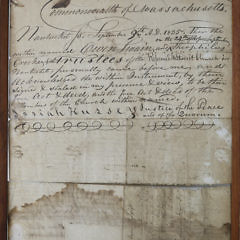 Commonwealth of Massachusetts.
Nantucket ss. September 9th A.D. 1835. then the
within named
Overseers & trustees of the Church in
Nantucket, personally came before me and
acknowledged the within Instrument, by them
signed & sealed in my presence to be their
act & deed, and the free act & deed of the
Members of the Church within named.
Josiah Hussey Justice of the Peace
and of the Quorum